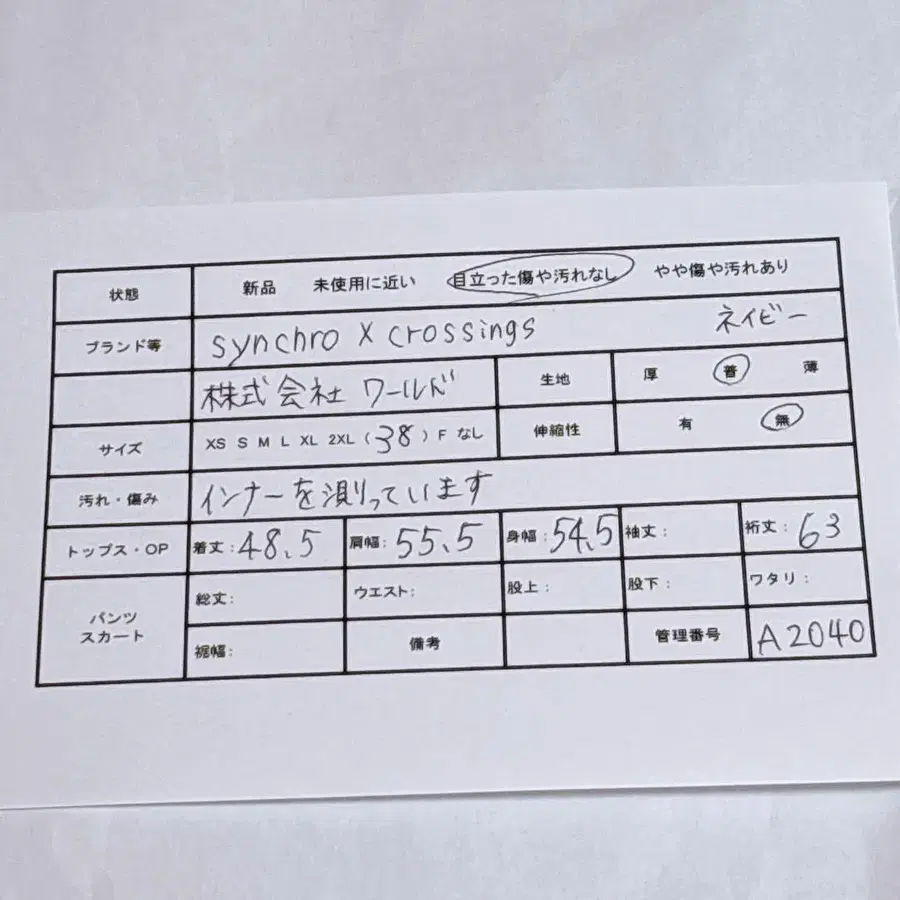 状態 新品 未使用に近い 目立った傷や汚れなし やや傷や汚れあり
ブランド等 synchro X crossings ネイビー
株式会社 ワールド 生地 厚 普 薄
サイズ XS S M L XL 2XL (38) F なし 伸縮性 有 無
汚れ・傷み インナーを測っています
トップス・OP 着丈:48.5 肩幅:55.5 身幅:54.5 袖丈: 裄丈:63
パンツ スカート 総丈: ウエスト: 股上: 股下: ワタリ:
裾幅: 備考 管理番号 A2040